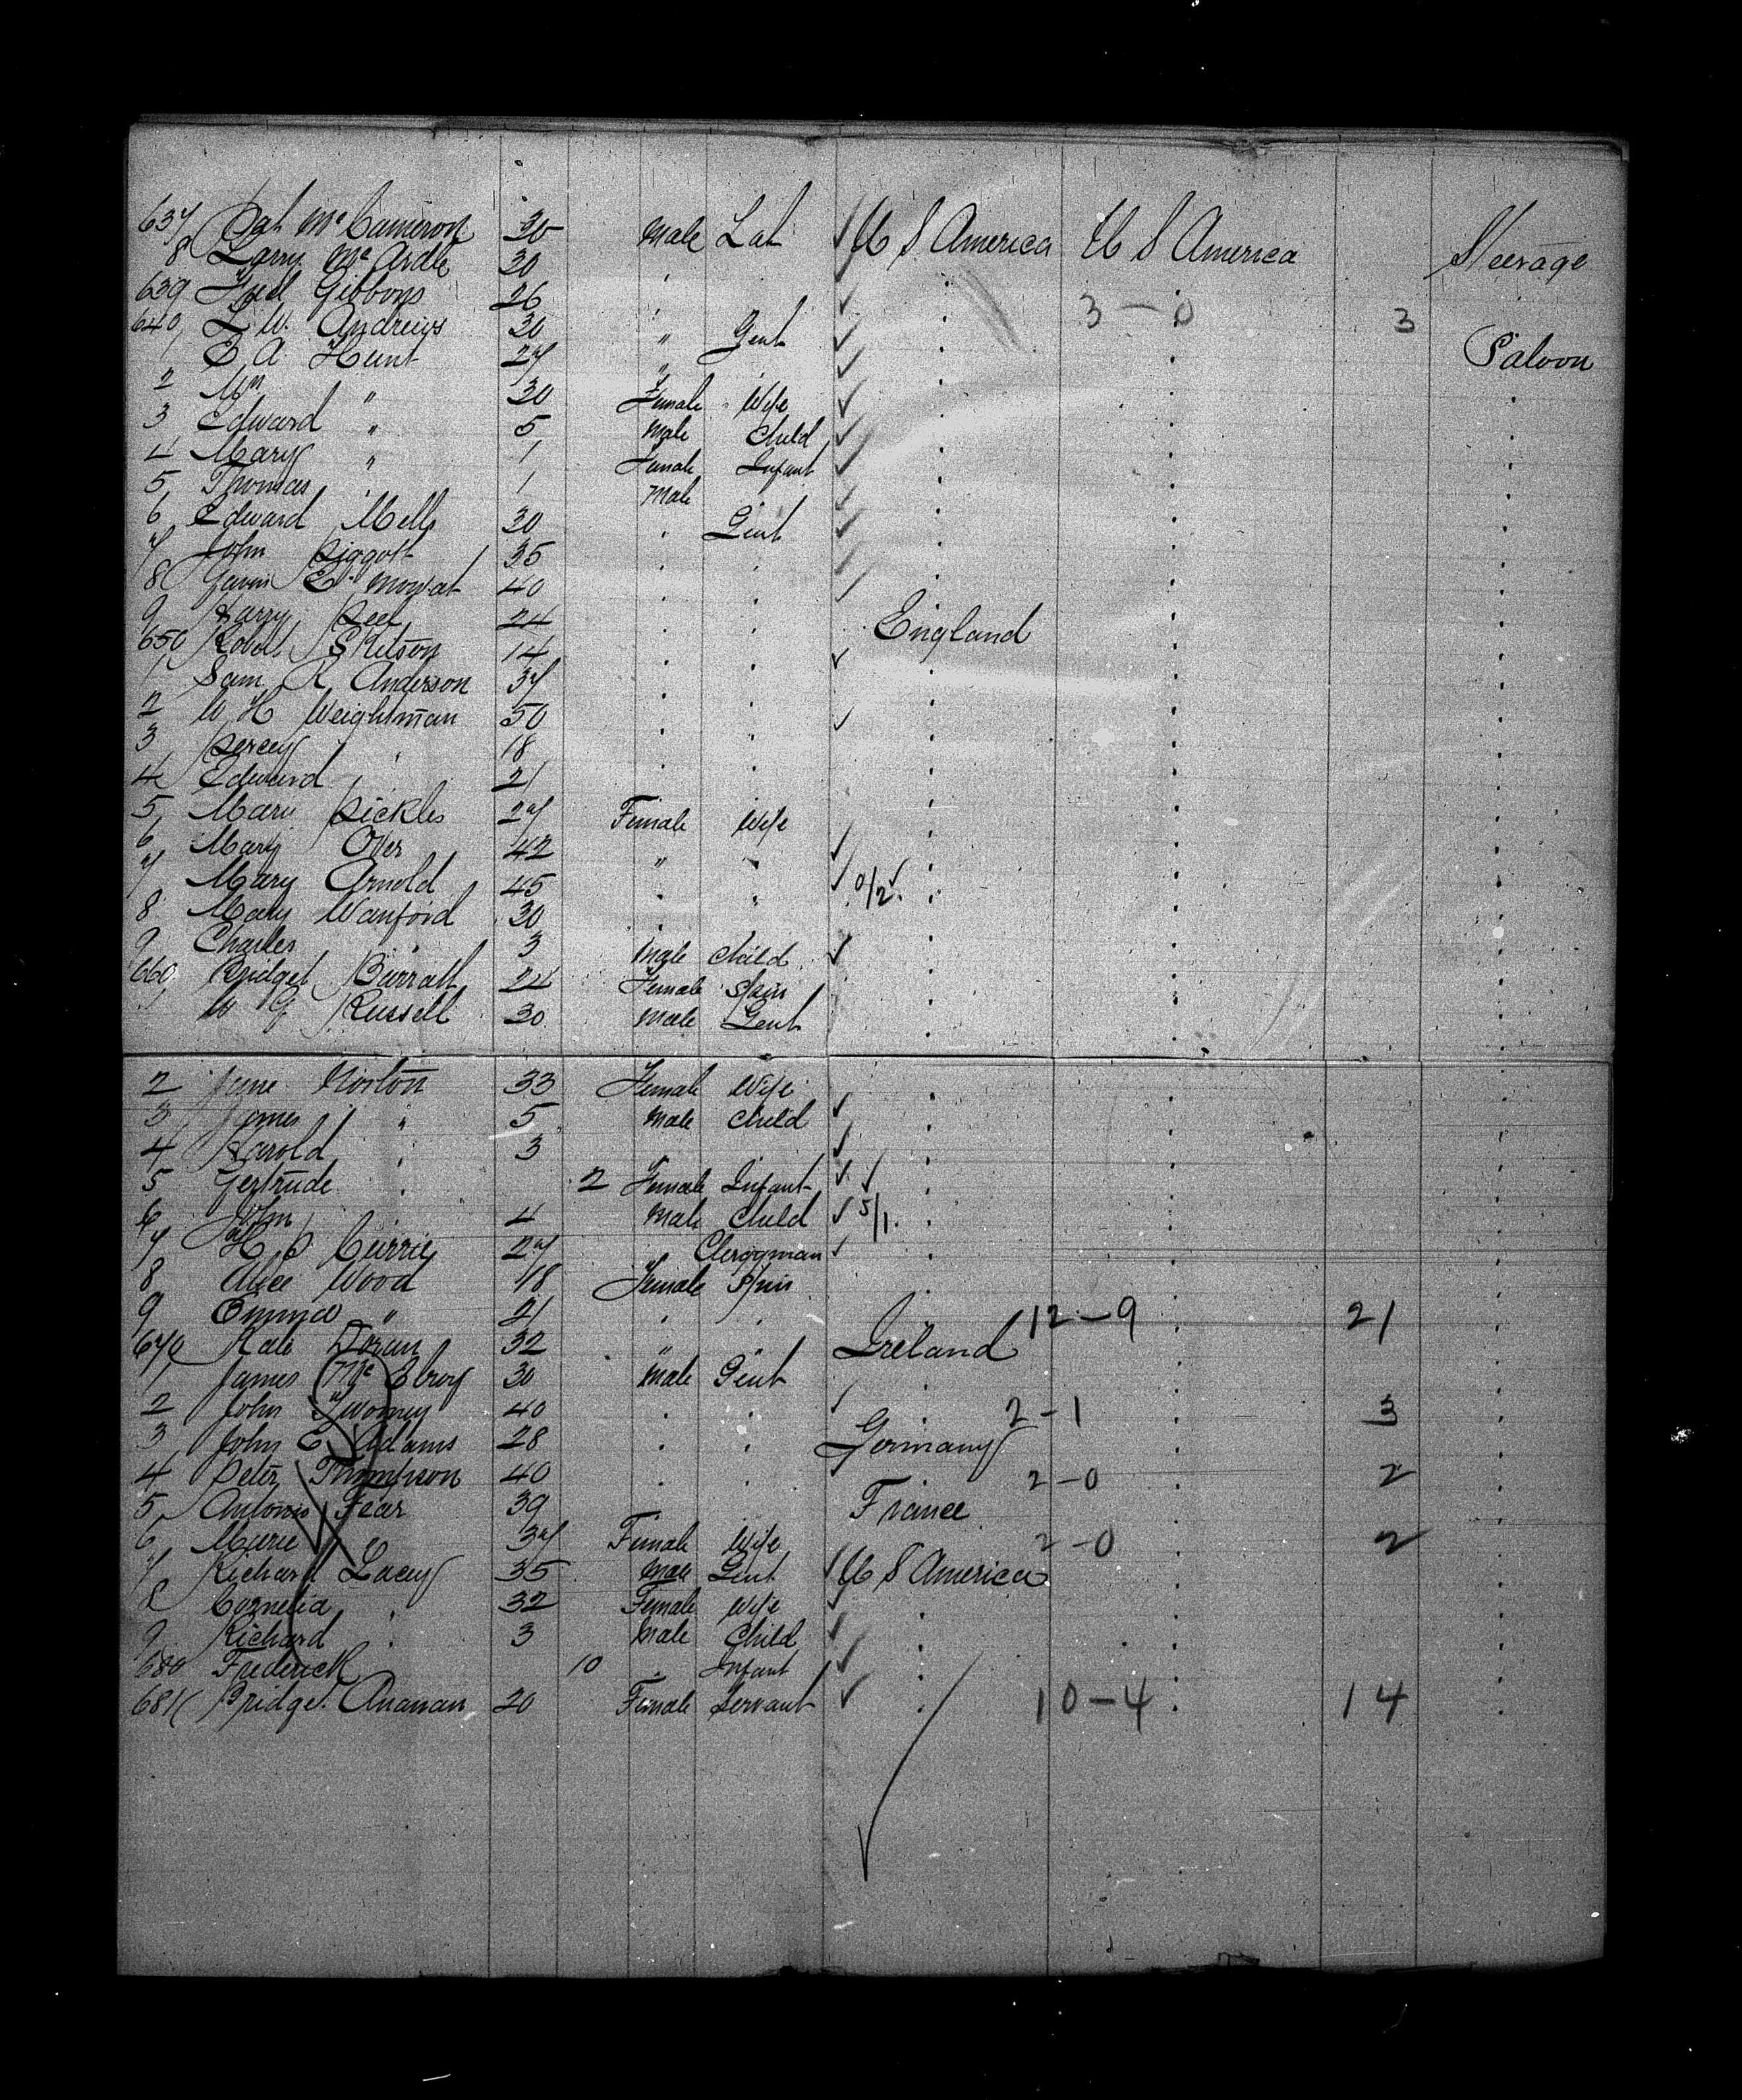 637 Pat McCameron 30 Male Lab U S America U S America Steerage
8 Larry McArdle 30 " "
639 Fred Gibbons 26 " 3-0 3
640 L W. Andrews 30 " Gent
1 E A. Hunt 27 " Saloon
2 Mrs " 30 Female Wife
3 Edward " 5 Male Child
4 Mary " 1 Female Infant
5 Thomas " 1 Male
6 Edward Mells 30 " Gent
7 John Piggott 35 " "
8 E. Mowat 40 " "
9 Harry Peel 24 " " England
650 Robt. Skitson 14 " "
1 Sam R Anderson 37 " "
2 W H Weightman 50 " "
3 Percy " 18 " "
4 Edward " 21 " "
5 Mary Pickles 27 Female Wife
6 Mary Oer 42 " "
7 Mary Arnold 45 " " 0/2.
8 Mary Wanford 30 "
9 Charles " 3 Male Child
660 Bridget Barratt 24 Female Spin
1 W G Russell 30 Male Gent
2 Jane Norton 33 Female Wife
3 James " 5 Male Child
4 Harold " 3
5 Gertrude " 2 Female Infant
6 John 4 Male Child 5/1.
7 H P Currie 27 Clergyman
8 Alice Wood 18 Female Spin
9 Emma " 21 " " 12-9 21
670 Kate Doran 32 " " Ireland
1 James McElroy 30 Male Gent
2 John Twomey 40 " " 2-1 3
3 John E. Adams 28 " " Germany
4 Peter Thompson 40 " " 2-0 2
5 Antonio Fear 39 France
6 Marie 37 Female Wife 2-0 2
7 Richard Lacey 35 Male Gent U S America
8 Cornelia " 32 Female Wife
9 Richard " 3 Male Child
680 Frederick 10 " Infant
681 Bridget Ananan 20 Female Servant 10-4 14